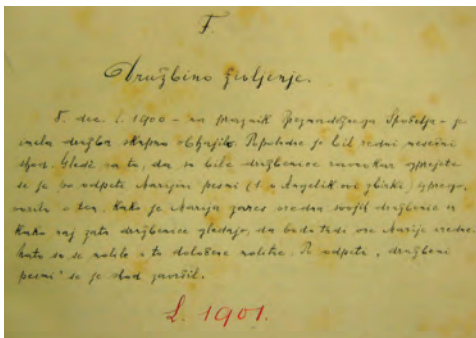 F.
Družbino življenje.
8. dec. l. 1900 – na praznik Brezmadežnega Spočetja – je
imela družba skupno obhajilo. Popoldne je bil redni mesečni
shod. Gledé na to, da so bile družbenice ravnokar sprejete
se je po odpeti Marijini pesmi (1. v Angelik ovi zbirki) izprego-
vorilo o tem, kako je Marija zares vredna svojih družbenic in
kako naj zato družbenice gledajo, da bodo tudi one Marije vredne.
nato so se molile v to določene molitve. Po odpeti „družbeni
pesmi" se je shod završil.
L. 1901.